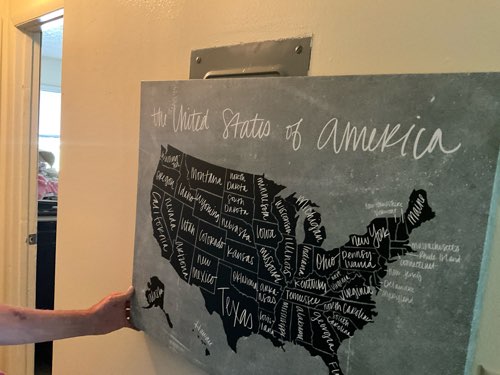 the United States of america
Montana
north Dakota
South Dakota
minnesota
wisconsin
michigan
Oregon
Idaho
wyoming
nebraska
Iowa
Illinois
Indiana
Ohio
Pennsylvania
new York
maine
massachusetts
Rhode Island
connecticut
new jersey
Delaware
maryland
California
nevada
Utah
Colorado
Kansas
missouri
Kentucky
Virginia
north Carolina
South Carolina
Tennessee
new mexico
Oklahoma
arkansas
Texas
louisiana
mississippi
Georgia
Fl